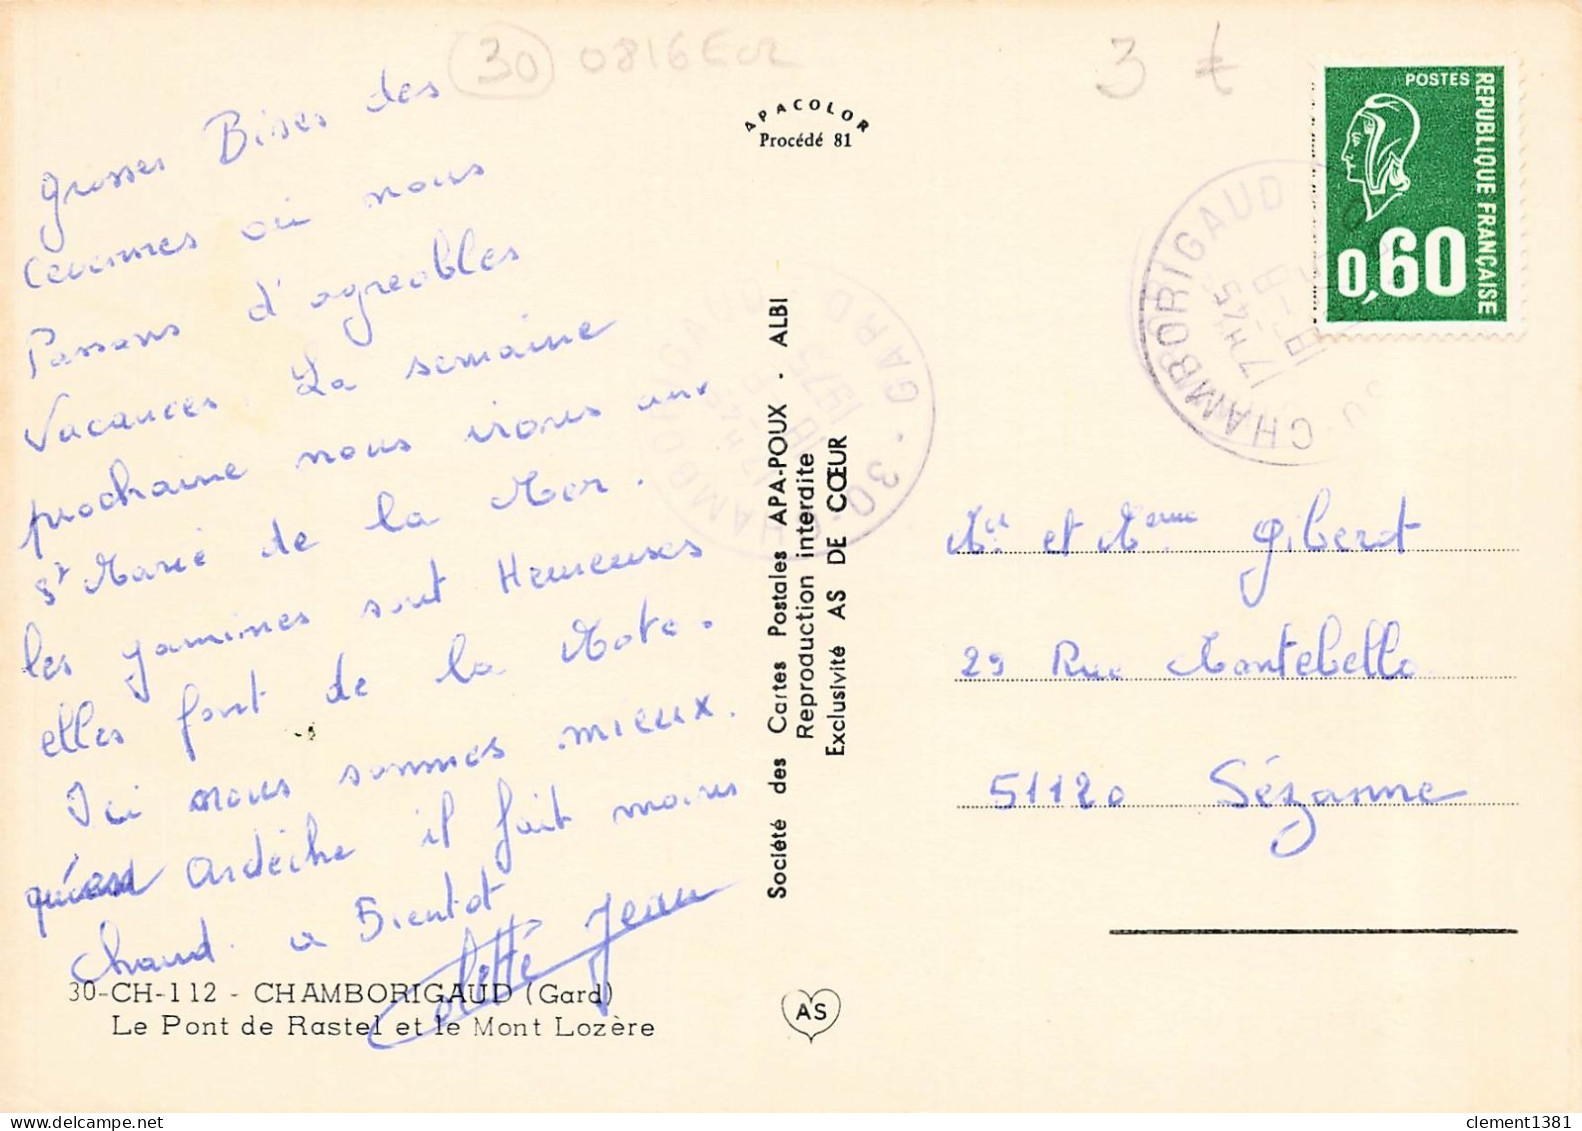 30 0816Eor
3 €
grosses Bises des
cevennes où nous
Passons d'agreables
Vacances. La semaine
prochaine nous irons aux
St Marie de la Mer.
les gamines sont Heureuses
elles font de la Moto.
Ici nous sommes mieux
qu'en Ardèche il fait moins
chaud. a Bientot
Colette Jean
30-CH-112 - CHAMBORIGAUD (Gard)
Le Pont de Rastel et le Mont Lozère
APACOLOR
Procédé 81
Société des Cartes Postales APA-POUX - ALBI
Reproduction interdite
Exclusivité AS DE CŒUR
AS
30-CHAMBORIGAUD GARD
17H45
18-8
1975
POSTES
REPUBLIQUE FRANÇAISE
0,60
CHAMBORIGAUD
17H45
18-8
Mr et Mme Giberot
29 Rue Montebello
51120 Sézanne
clement1381